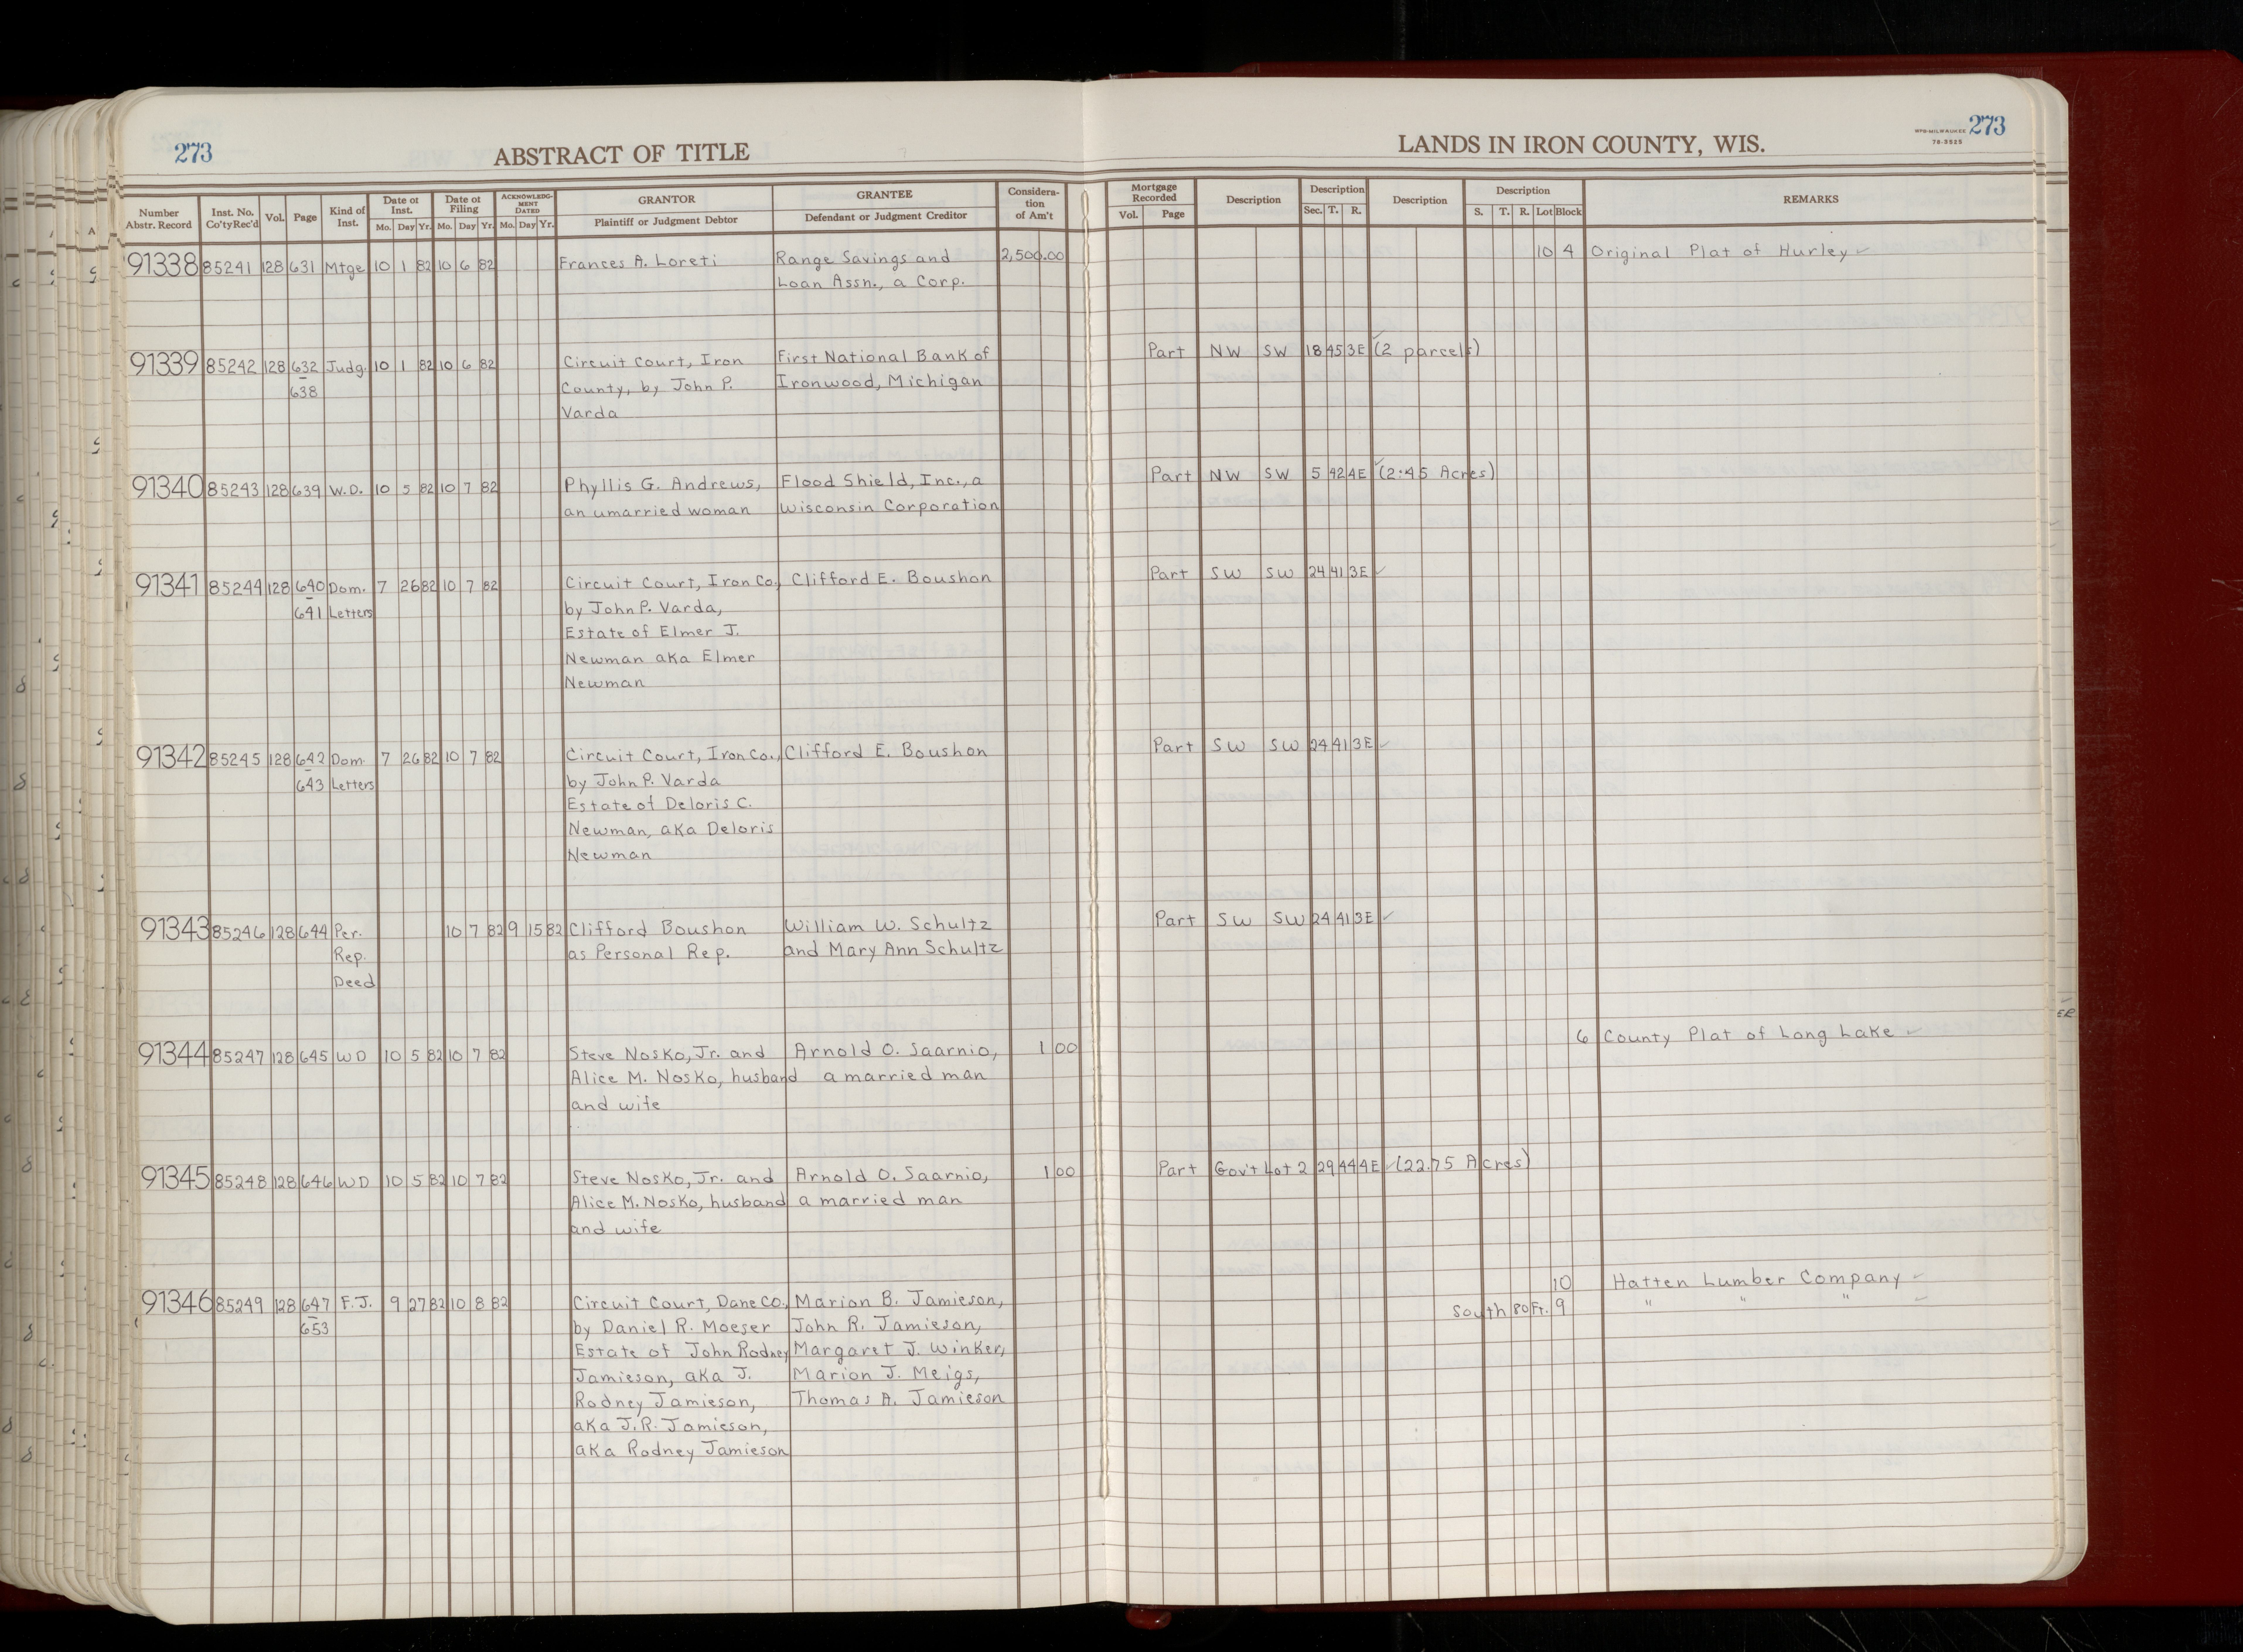 273
ABSTRACT OF TITLE
LANDS IN IRON COUNTY, WIS.
WPB-MILWAUKEE 273
78-3525
Number Abstr. Record | Inst. No. Co'ty Rec'd | Vol. | Page | Kind of Inst. | Date of Inst. Mo. Day Yr. | Date of Filing Mo. Day Yr. | ACKNOWLEDGMENT DATED Mo. Day Yr. | GRANTOR Plaintiff or Judgment Debtor | GRANTEE Defendant or Judgment Creditor | Consideration of Am't | Mortgage Recorded Vol. Page | Description | Description Sec. T. R. | Description | Description S. T. R. Lot Block | REMARKS
91338 85241 128 631 Mtge 10 1 82 10 6 82 Frances A. Loreti Range Savings and 2,500.00 10 4 Original Plat of Hurley ✓
Loan Assn., a Corp.
91339 85242 128 632 Judg. 10 1 82 10 6 82 Circuit Court, Iron First National Bank of Part NW SW 18 45 3E ✓ (2 parcels)
638 County, by John P. Ironwood, Michigan
Varda
91340 85243 128 639 W.D. 10 5 82 10 7 82 Phyllis G. Andrews, Flood Shield, Inc., a Part NW SW 5 42 4E ✓ (2.45 Acres)
an umarried woman Wisconsin Corporation
91341 85244 128 640 Dom. 7 26 82 10 7 82 Circuit Court, Iron Co., Clifford E. Boushon Part SW SW 24 41 3E ✓
641 Letters by John P. Varda,
Estate of Elmer J.
Newman aka Elmer
Newman
91342 85245 128 642 Dom. 7 26 82 10 7 82 Circuit Court, Iron Co., Clifford E. Boushon Part SW SW 24 41 3E ✓
643 Letters by John P. Varda
Estate of Deloris C.
Newman, aka Deloris
Newman
91343 85246 128 644 Per. 10 7 82 9 15 82 Clifford Boushon William W. Schultz Part SW SW 24 41 3E ✓
Rep. as Personal Rep. and Mary Ann Schultz
Deed
91344 85247 128 645 WD 10 5 82 10 7 82 Steve Nosko, Jr. and Arnold O. Saarnio, 1 00 6 County Plat of Long Lake ✓
Alice M. Nosko, husband a married man
and wife
91345 85248 128 646 WD 10 5 82 10 7 82 Steve Nosko, Jr. and Arnold O. Saarnio, 1 00 Part Gov't Lot 2 29 44 4E ✓ (22.75 Acres)
Alice M. Nosko, husband a married man
and wife
10 Hatten Lumber Company ✓
91346 85249 128 647 F.J. 9 27 82 10 8 82 Circuit Court, Dane Co., Marion B. Jamieson, South 80 Ft. 9 " " " ✓
653 by Daniel R. Moeser John R. Jamieson,
Estate of John Rodney Margaret J. Winker,
Jamieson, aka J. Marion J. Meigs,
Rodney Jamieson, Thomas A. Jamieson
aka J.R. Jamieson,
aka Rodney Jamieson